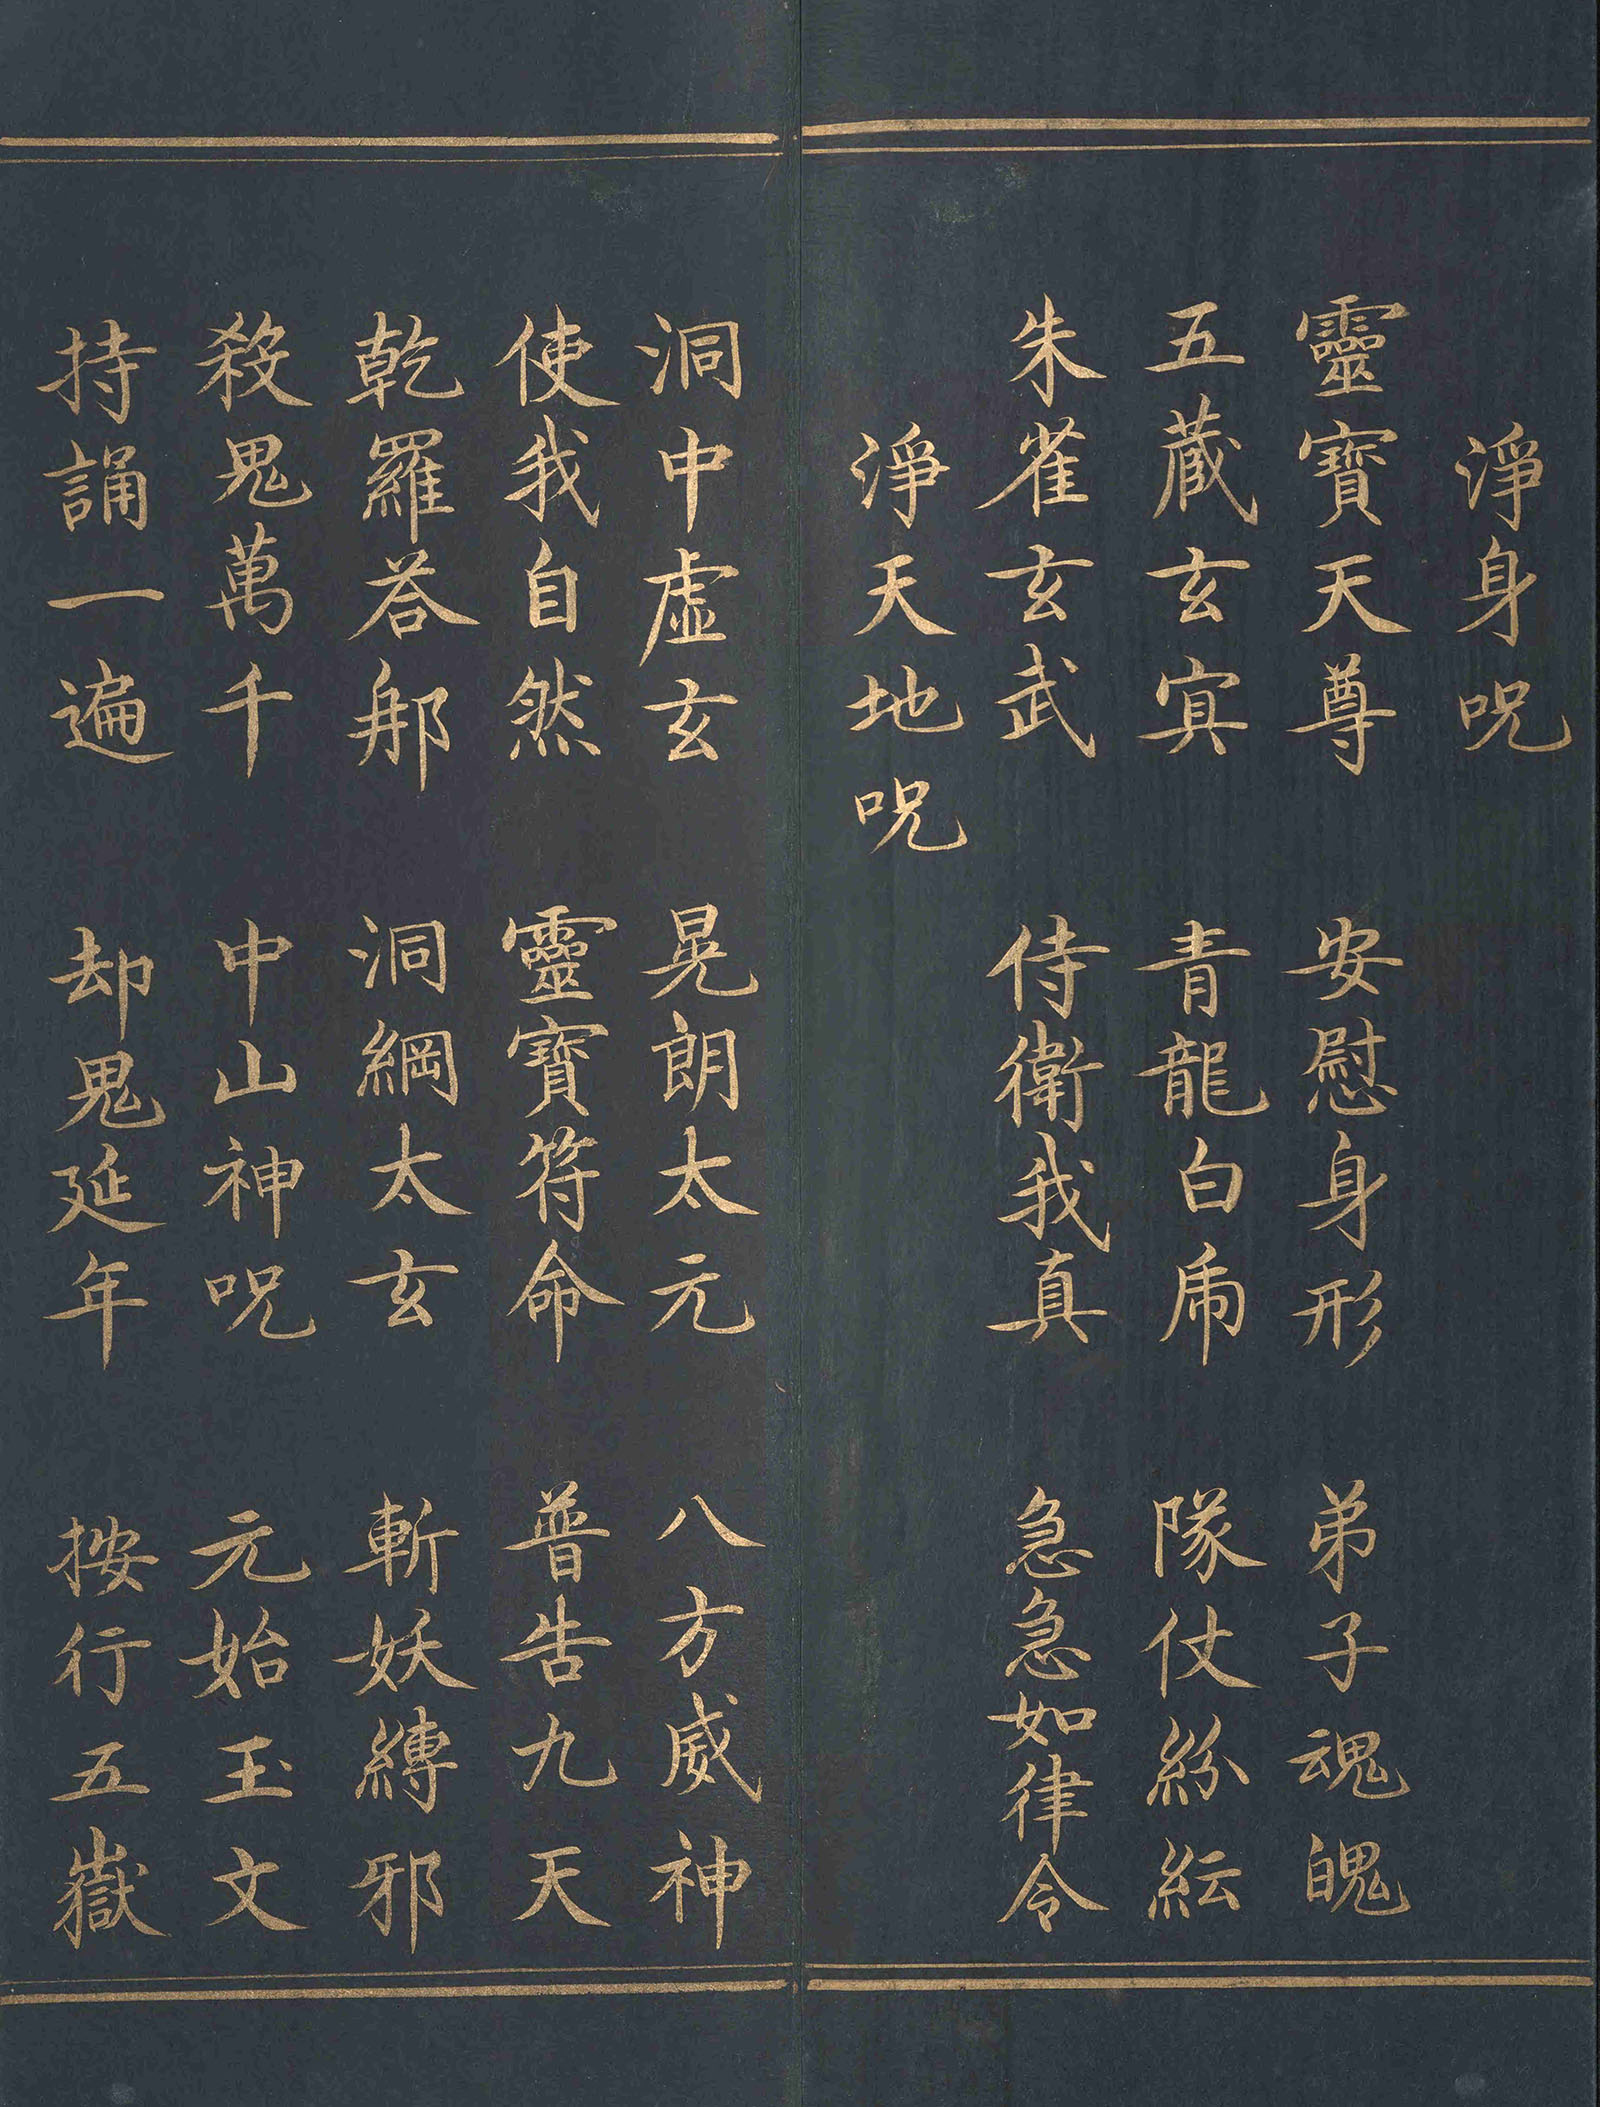 淨身呪
靈寶天尊 安慰身形 弟子魂魄
五蔵玄㝠 青龍白乕 隊仗紛紜
朱雀玄武 侍衛我真 急急如律令
淨天地呪
洞中虛玄 晃朗太元 八方威神
使我自然 靈寶符命 普告九天
乾羅荅那 洞綱太玄 斬妖縛邪
殺鬼萬千 中山神呪 元始玉文
持誦一遍 却鬼延年 按行五嶽